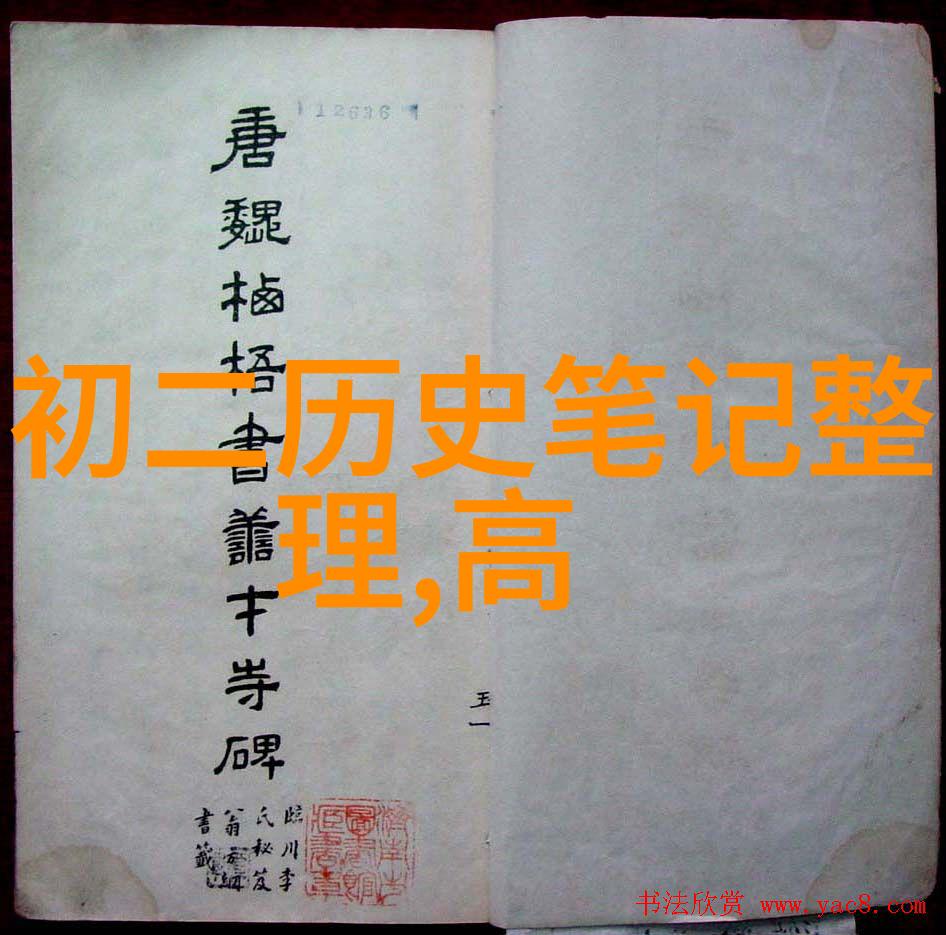 12636
唐魏栖梧書善才寺碑
初二历史笔记整
理,高
臨川李
氏秘笈
翁方綱
書籤
濟南市
圖書館
藏書章
书法欣赏 www.yac8.com